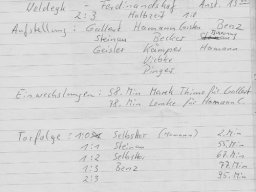 Veldegk - Ferdinandshof Anst. 15 00
2:3 Halbzeit 1:2
Aufstellung: Gollert Hamann Carsten Benz
Steinau Becker
Geisler Kämper Hamann
Viebke
Pinger
Einwechslungen: 58. Min Marek Thime für Gollert
78. Min Lemke für Hamann C.
Torfolge: 1:0 Selbsttor (Hamann) 2. Min
1:1 Steinau 55. Min
1:2 Selbsttor 67. Min
1:3 Benz 77. Min
2:3 95. Min